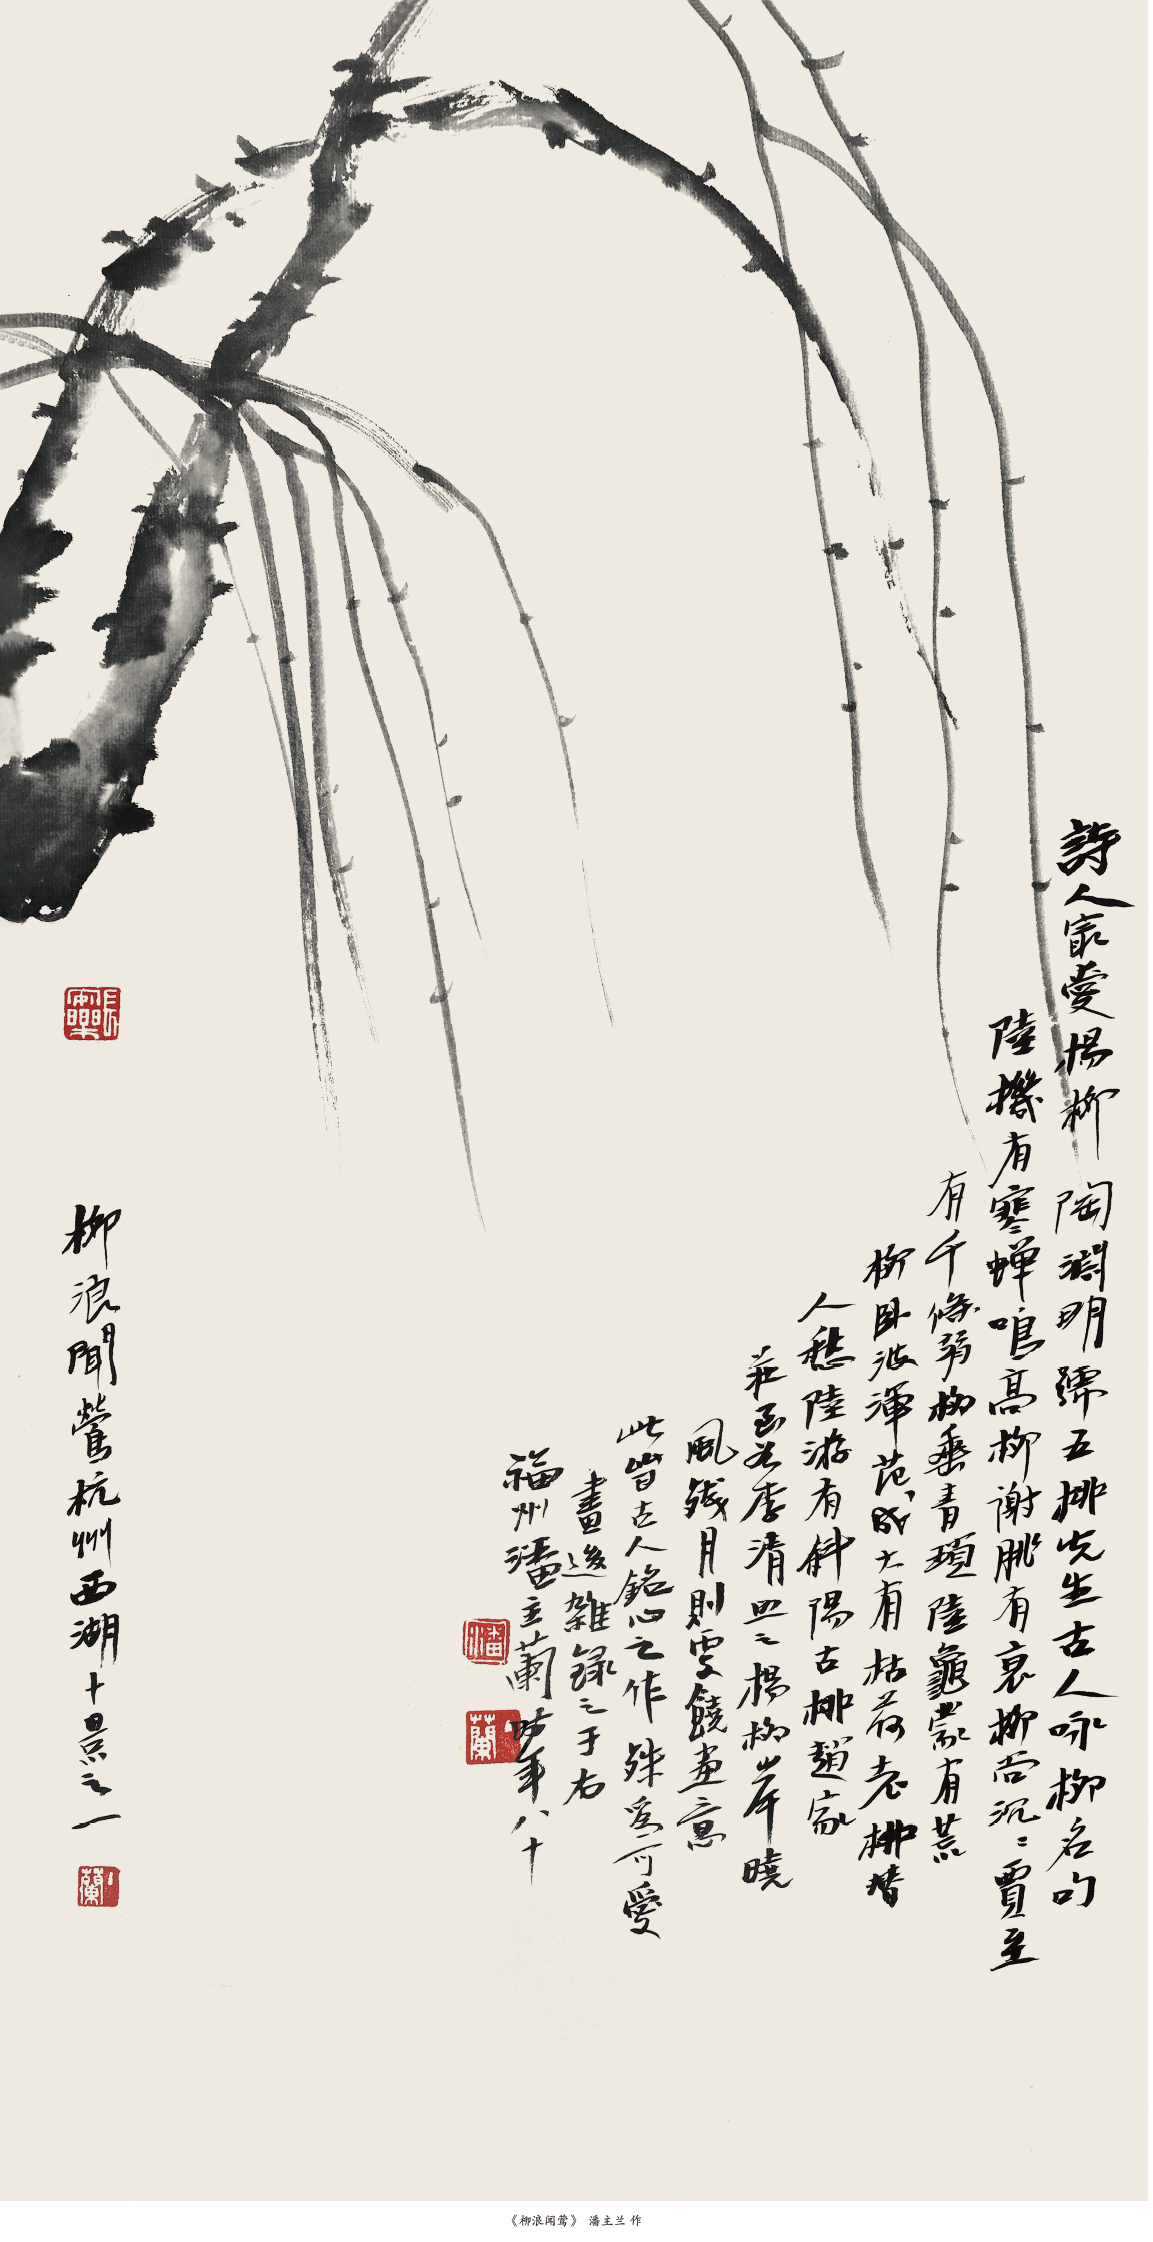 詩人最愛楊柳陶淵明號五柳先生古人咏柳名句
陸機有寒蟬鳴高柳謝朓有衰柳尚沉〻賈至
有千條弱柳垂青瑣陸龜蒙有荒
柳卧波渾范成大有枯荷老柳替
人愁陸游有斜陽古柳趙家
莊至若李清照之楊柳岸曉
風殘月則更饒畫意
此皆古人銘心之作殊為可愛
畫後雜錄之于右
福州潘主蘭時年八十
潘
蘭
柳浪聞鶯杭州西湖十景之一
長樂
蘭
《柳浪闻莺》 潘主兰 作